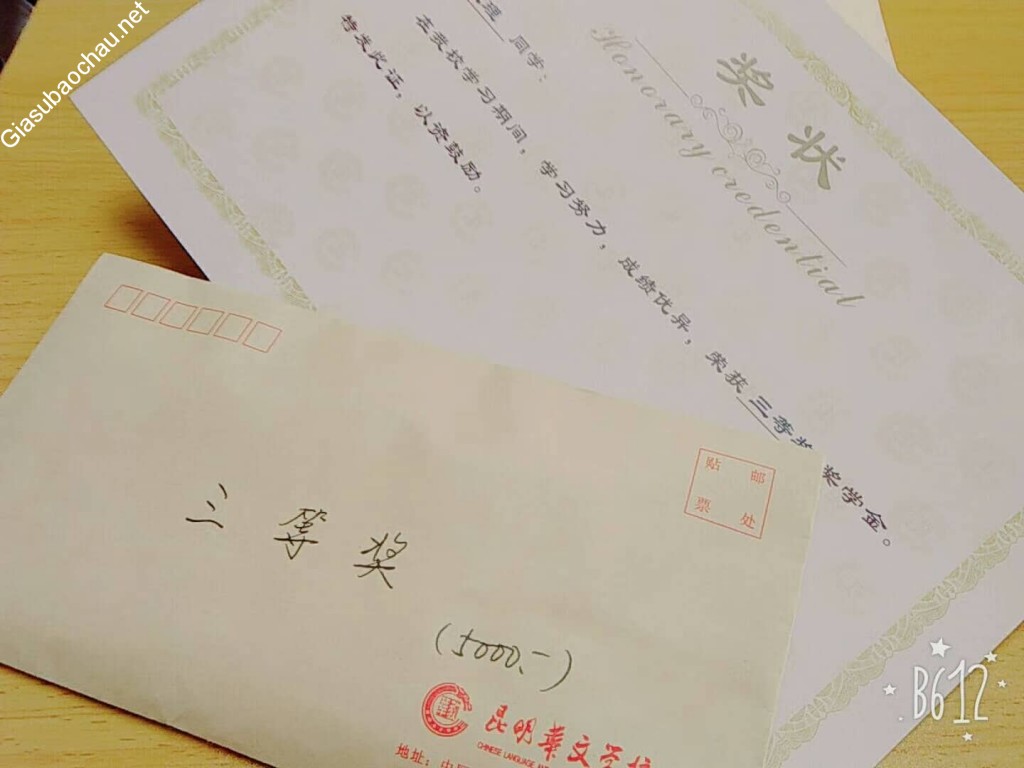 Giasubaochau.net
奖状
Honorary credential
同学：
在我校学习期间，学习努力，成绩优异，荣获三等奖奖学金。
特发此证，以资鼓励。
贴 邮
票 处
三等奖
(5000.-)
昆明华文学校
CHINESE LANGUAGE
地址：中
B612